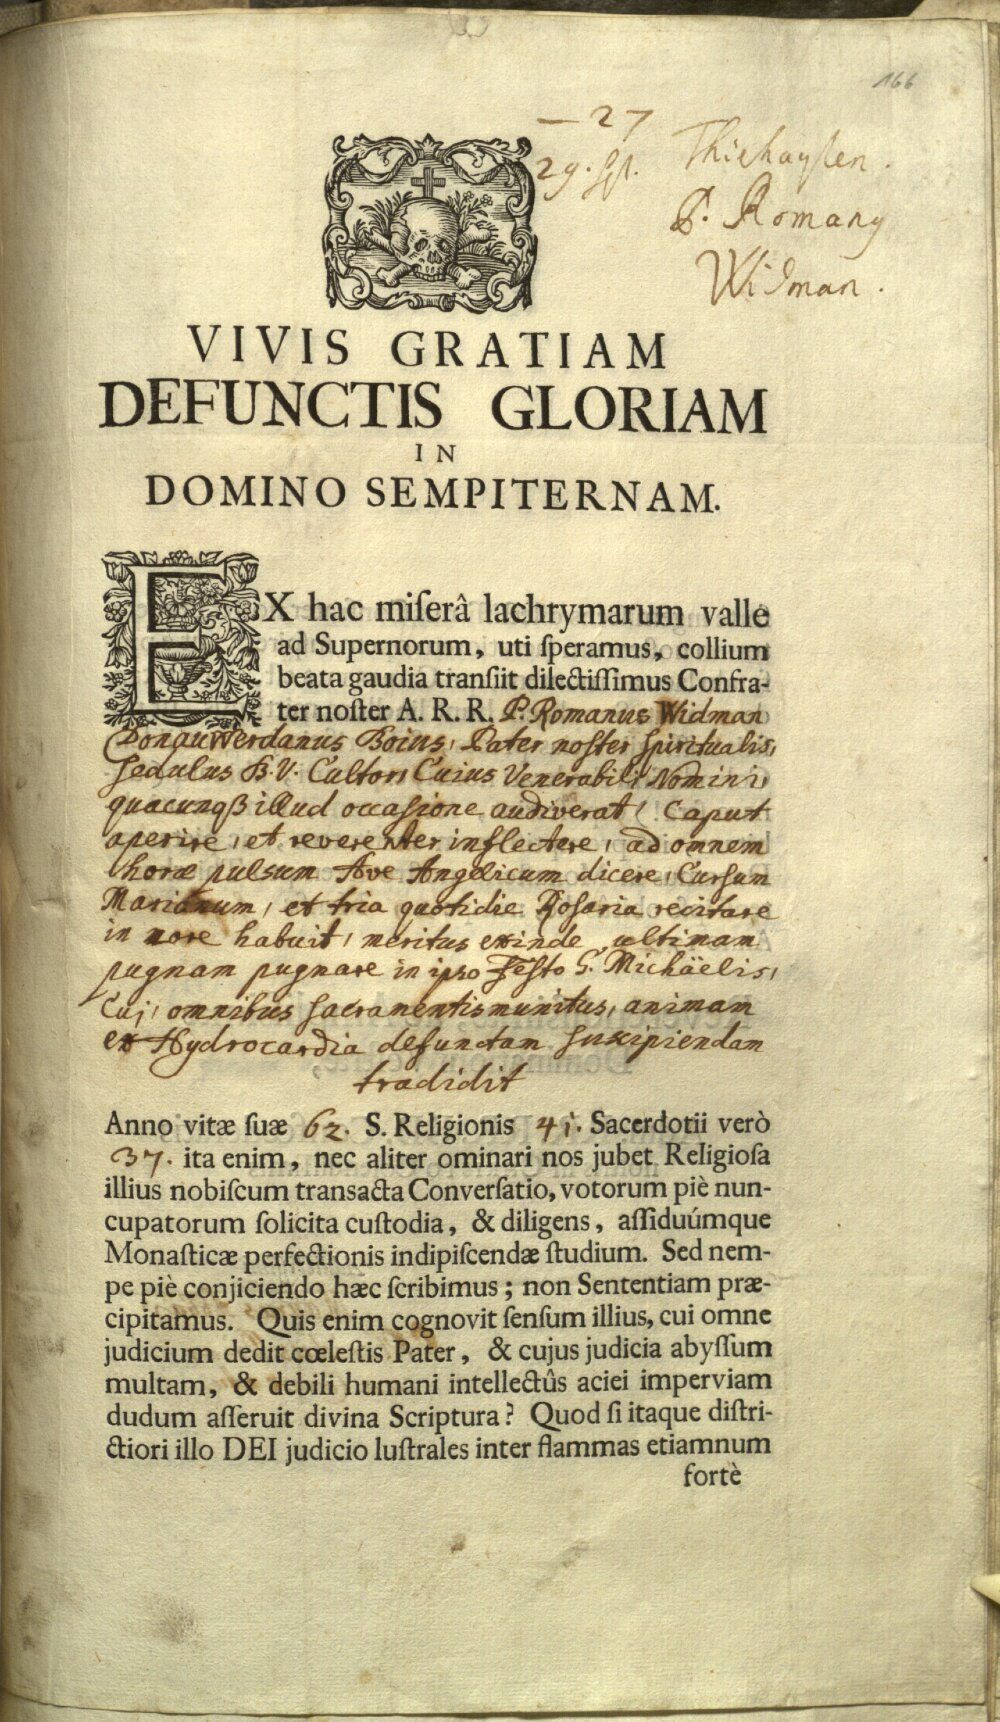 166
— 27
29. Sept. Thiehaupten.
P. Romany
Widman.
VIVIS GRATIAM
DEFUNCTIS GLORIAM
IN
DOMINO SEMPITERNAM.
EX hac miſerâ lachrymarum valle
ad Supernorum, uti ſperamus, collium
beata gaudia transiit dilectiſſimus Confra-
ter noſter A. R. R. P. Romanus Widman
Donauwerdanus Boius, Pater noster spiritualis,
sedulus B. V. Cultor, Cuius Venerabili Nomini,
quacunqß illud occasione audiverat, Caput
aperire, et reverenter inflectere, ad omnem
horæ pulsum Ave Angelicum dicere, Cursum
Marianum, et tria quotidie Rosaria recitare
in more habuit, meritus exinde ultimam
pugnam pugnare in ipso Festo S. Michäelis,
Cui, omnibus sacramentis munitus, animam
ex Hydrocardia defunctam suscipiendam
tradidit
Anno vitæ ſuæ 62. S. Religionis 41. Sacerdotii verò
37. ita enim, nec aliter ominari nos jubet Religioſa
illius nobiſcum transacta Converſatio, votorum piè nun-
cupatorum ſolicita cuſtodia, & diligens, aſſiduúmque
Monaſticæ perfectionis indipiſcendæ ſtudium. Sed nem-
pe piè conjiciendo hæc ſcribimus; non Sententiam præ-
cipitamus. Quis enim cognovit ſenſum illius, cui omne
judicium dedit cœleſtis Pater, & cujus judicia abyſſum
multam, & debili humani intellectûs aciei imperviam
dudum aſſeruit divina Scriptura? Quod ſi itaque diſtri-
ctiori illo DEI judicio luſtrales inter flammas etiamnum
fortè